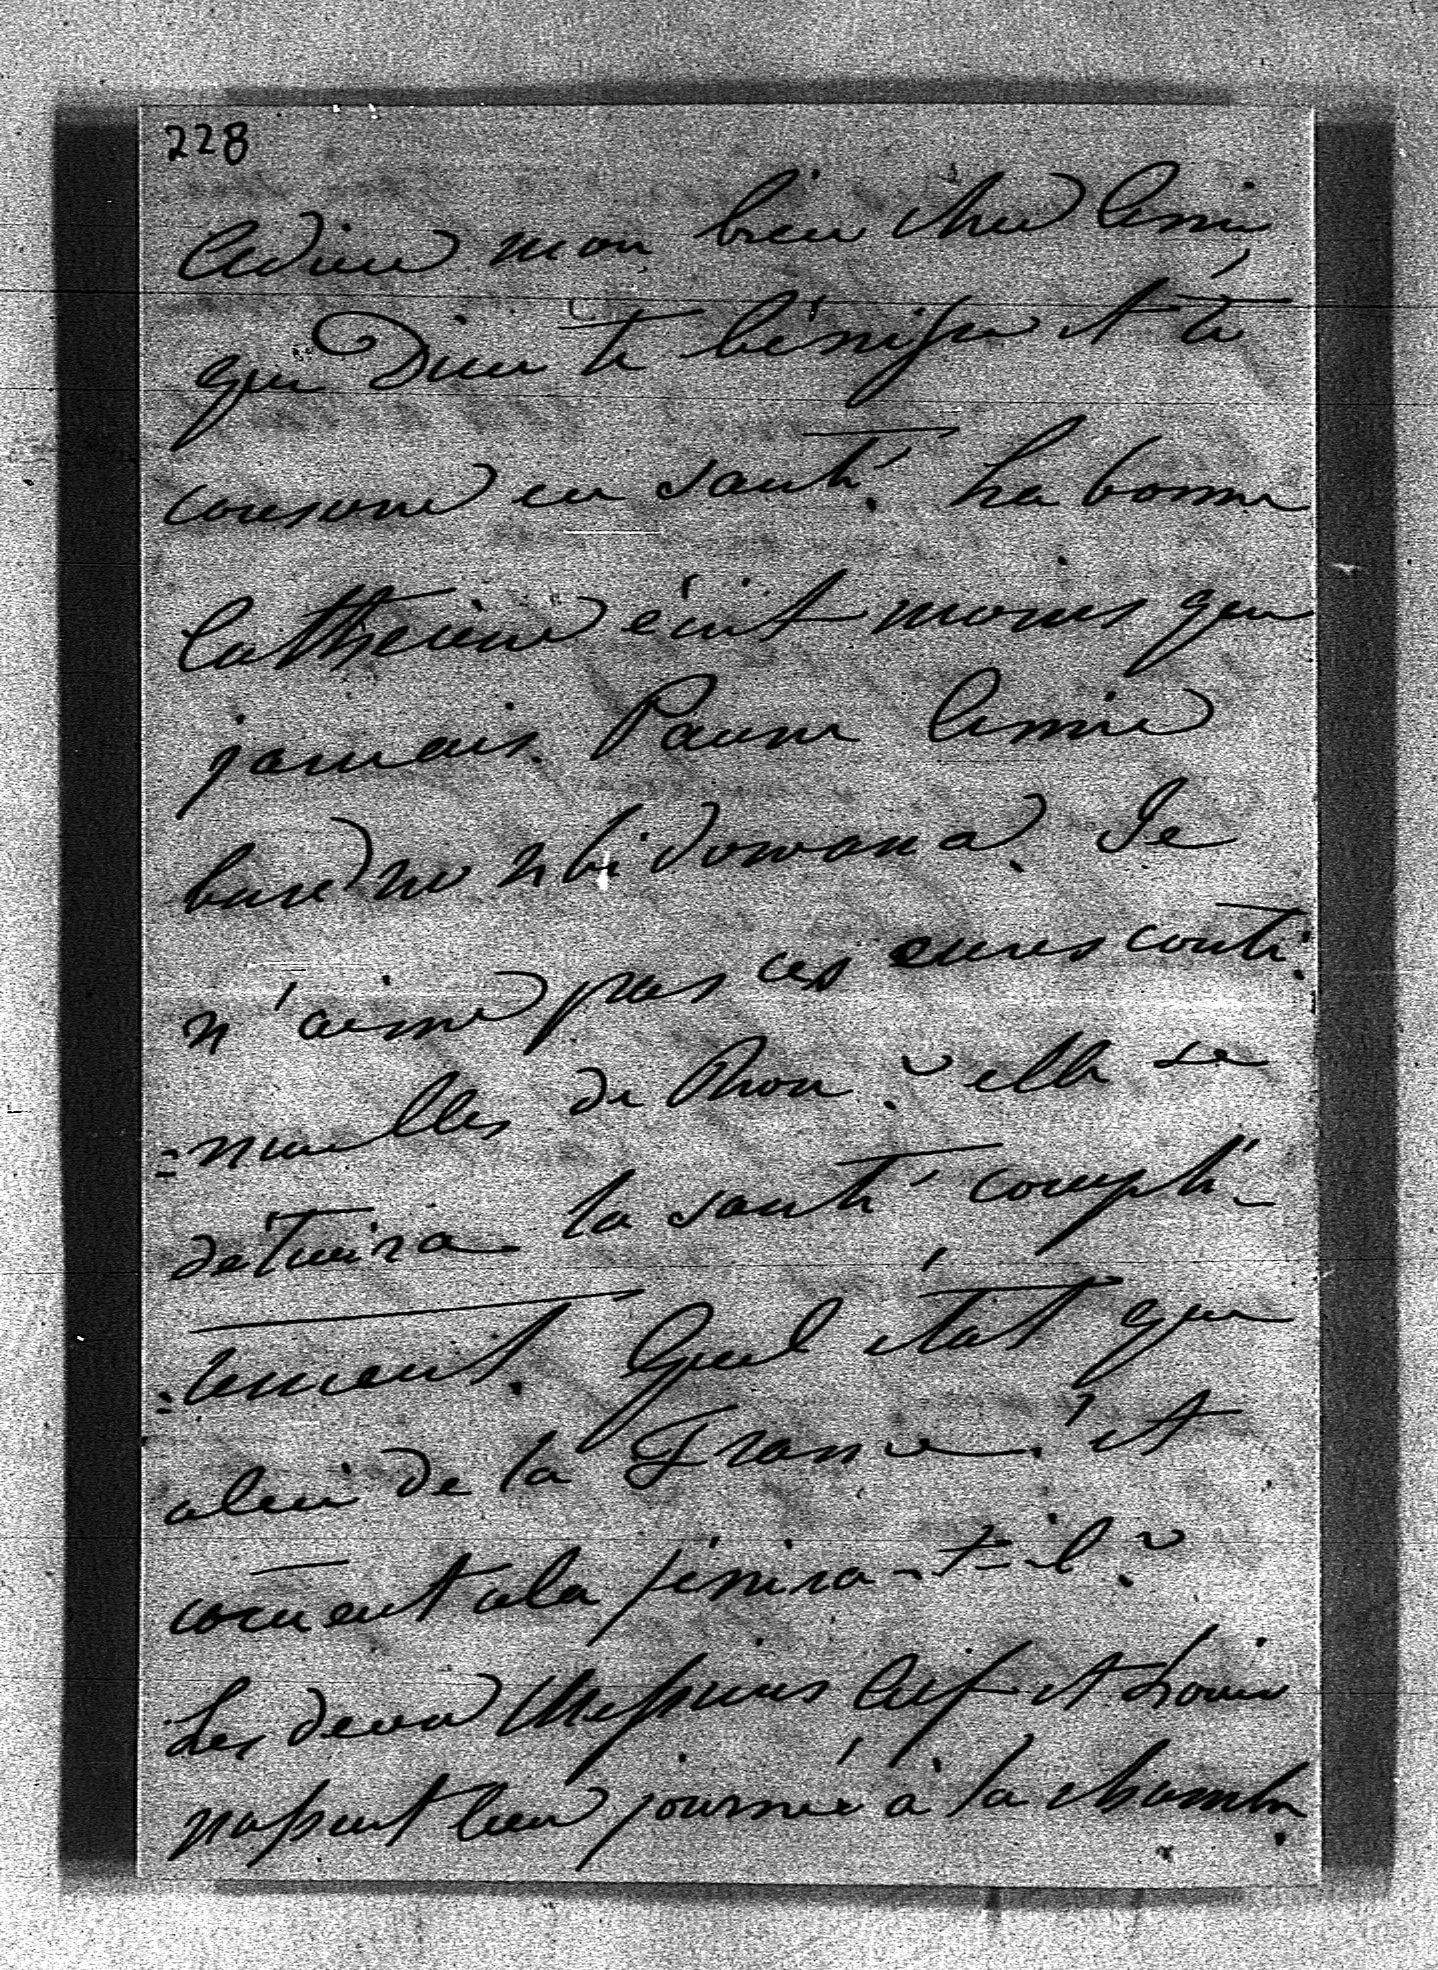 228
Adieu mon bien cher Ami
que Dieu te bénisse et te
conserve en santé. La bonne
Catherine écrit moins que
jamais. Pauvre Amie
n'aime pas ces cures conti:
=nuelles de Thon? elle se
detruira la santé complé-
=tement. Quel état que
celui de la France! et
coment cela finira-t-il?
Les deux Messieurs et Louis
passent leur journée à la chambre.